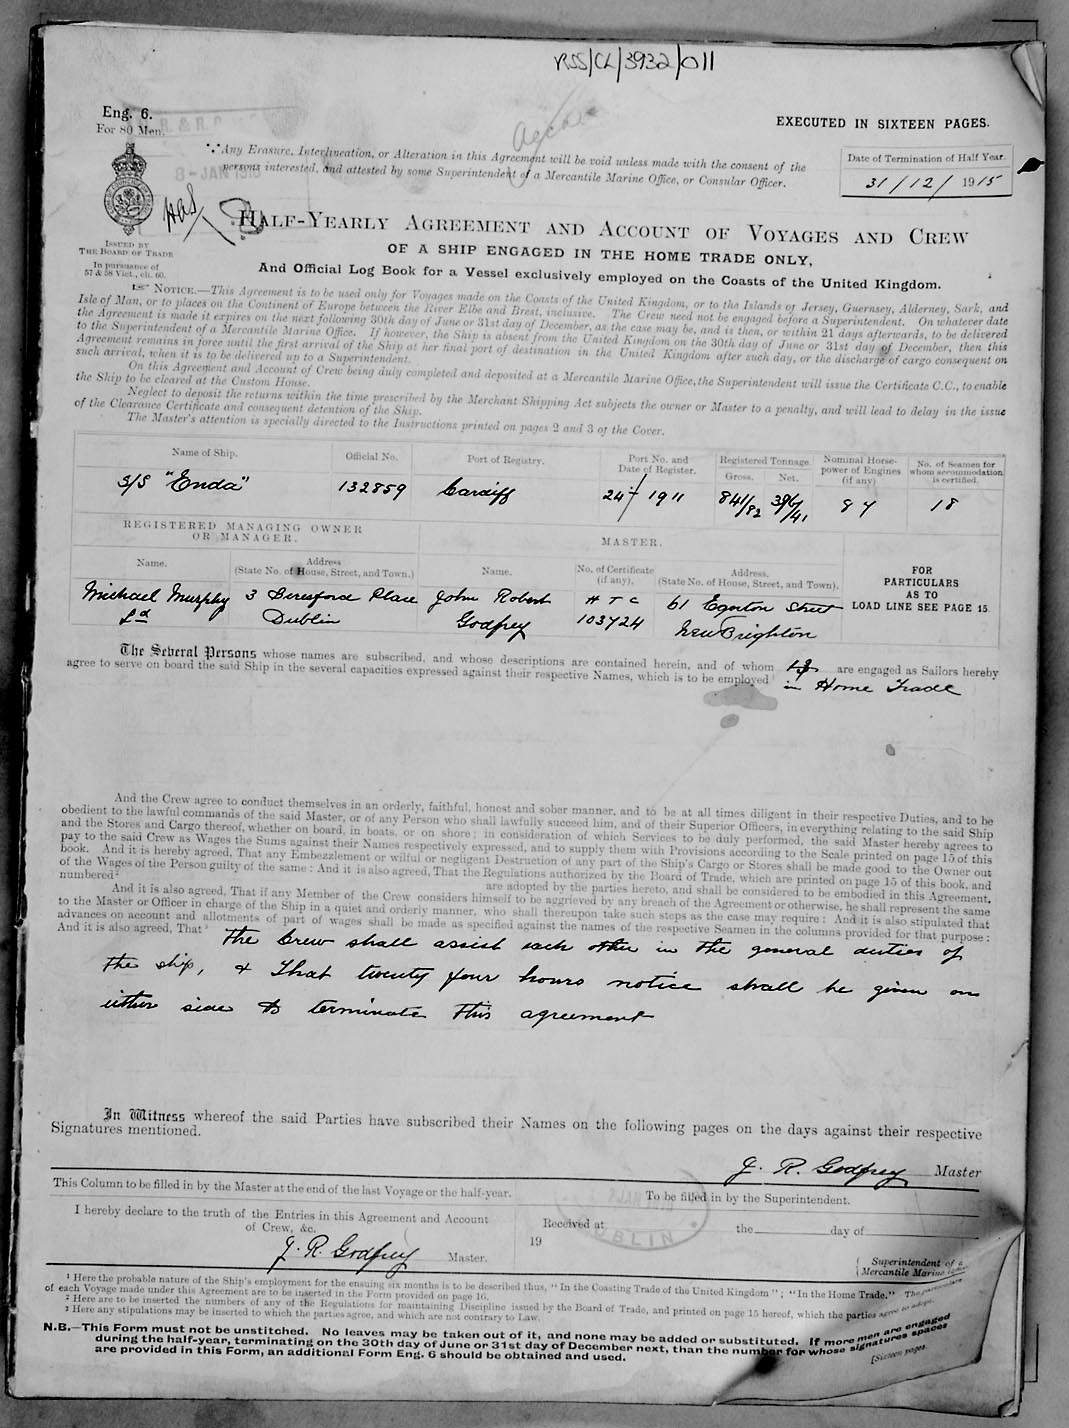 RSS/CL/3932/011
Eng. 6.
For 80 Men.
EXECUTED IN SIXTEEN PAGES.
8-JAN 1916
Any Erasure, Interlineation, or Alteration in this Agreement will be void unless made with the consent of the
persons interested, and attested by some Superintendent of a Mercantile Marine Office, or Consular Officer.
Date of Termination of Half Year.
31/12/1915
HALF-YEARLY AGREEMENT AND ACCOUNT OF VOYAGES AND CREW
OF A SHIP ENGAGED IN THE HOME TRADE ONLY,
And Official Log Book for a Vessel exclusively employed on the Coasts of the United Kingdom.
ISSUED BY
THE BOARD OF TRADE
In pursuance of
57 & 58 Vict., ch. 60.
NOTICE.—This Agreement is to be used only for Voyages made on the Coasts of the United Kingdom, or to the Islands of Jersey, Guernsey, Alderney, Sark, and
Isle of Man, or to places on the Continent of Europe between the River Elbe and Brest, inclusive. The Crew need not be engaged before a Superintendent. On whatever date
the Agreement is made it expires on the next following 30th day of June or 31st day of December, as the case may be, and is then, or within 21 days afterwards, to be delivered
to the Superintendent of a Mercantile Marine Office. If however, the Ship is absent from the United Kingdom on the 30th day of June or 31st day of December, then this
Agreement remains in force until the first arrival of the Ship at her final port of destination in the United Kingdom after such day, or the discharge of cargo consequent on
such arrival, when it is to be delivered up to a Superintendent.
On this Agreement and Account of Crew being duly completed and deposited at a Mercantile Marine Office, the Superintendent will issue the Certificate C.C., to enable
the Ship to be cleared at the Custom House.
Neglect to deposit the returns within the time prescribed by the Merchant Shipping Act subjects the owner or Master to a penalty, and will lead to delay in the issue
of the Clearance Certificate and consequent detention of the Ship.
The Master's attention is specially directed to the Instructions printed on pages 2 and 3 of the Cover.
Name of Ship. Official No. Port of Registry. Port No. and Date of Register. Registered Tonnage Gross. Net. Nominal Horse-power of Engines (if any) No. of Seamen for whom accommodation is certified.
S/S "Enda" 132859 Cardiff 24/1911 841/82 396/41 87 18
REGISTERED MANAGING OWNER
OR MANAGER.
MASTER.
Name. Address (State No. of House, Street, and Town.) Name. No. of Certificate (if any). Address. (State No. of House, Street, and Town).
FOR
PARTICULARS
AS TO
LOAD LINE SEE PAGE 15.
Michael Murphy 3 Beresford Place John Robert H T C 61 Egerton Street
Ld Dublin Godfrey 103724 New Brighton
The Several Persons whose names are subscribed, and whose descriptions are contained herein, and of whom are engaged as Sailors hereby
agree to serve on board the said Ship in the several capacities expressed against their respective Names, which is to be employed in Home Trade
And the Crew agree to conduct themselves in an orderly, faithful, honest and sober manner, and to be at all times diligent in their respective Duties, and to be
obedient to the lawful commands of the said Master, or of any Person who shall lawfully succeed him, and of their Superior Officers, in everything relating to the said Ship
and the Stores and Cargo thereof, whether on board, in boats, or on shore; in consideration of which Services to be duly performed, the said Master hereby agrees to
pay to the said Crew as Wages the Sums against their Names respectively expressed, and to supply them with Provisions according to the Scale printed on page 15 of this
book. And it is hereby agreed, That any Embezzlement or wilful or negligent Destruction of any part of the Ship's Cargo or Stores shall be made good to the Owner out
of the Wages of the Person guilty of the same: And it is also agreed, That the Regulations authorized by the Board of Trade, which are printed on page 15 of this book, and
numbered² are adopted by the parties hereto, and shall be considered to be embodied in this Agreement.
And it is also agreed, That if any Member of the Crew considers himself to be aggrieved by any breach of the Agreement or otherwise, he shall represent the same
to the Master or Officer in charge of the Ship in a quiet and orderly manner, who shall thereupon take such steps as the case may require: And it is also stipulated that
advances on account and allotments of part of wages shall be made as specified against the names of the respective Seamen in the columns provided for that purpose:
And it is also agreed, That³ the Crew shall assist each other in the general duties of
the ship, & that twenty four hours notice shall be given on
either side to terminate this agreement
In Witness whereof the said Parties have subscribed their Names on the following pages on the days against their respective
Signatures mentioned.
J. R. Godfrey Master
This Column to be filled in by the Master at the end of the last Voyage or the half-year.
To be filled in by the Superintendent.
I hereby declare to the truth of the Entries in this Agreement and Account
of Crew, &c.
J. R. Godfrey Master.
Received at the day of
19
DUBLIN
Superintendent of a
Mercantile Marine Office.
¹ Here the probable nature of the Ship's employment for the ensuing six months is to be described thus, "In the Coasting Trade of the United Kingdom"; "In the Home Trade." The particulars
of each Voyage made under this Agreement are to be inserted in the Form provided on page 16.
² Here are to be inserted the numbers of any of the Regulations for maintaining Discipline issued by the Board of Trade, and printed on page 15 hereof, which the parties agree to adopt.
³ Here any stipulations may be inserted to which the parties agree, and which are not contrary to Law.
N.B.—This Form must not be unstitched. No leaves may be taken out of it, and none may be added or substituted. If more men are engaged
during the half-year, terminating on the 30th day of June or 31st day of December next, than the number for whose signatures spaces
are provided in this Form, an additional Form Eng. 6 should be obtained and used.
[Sixteen pages.